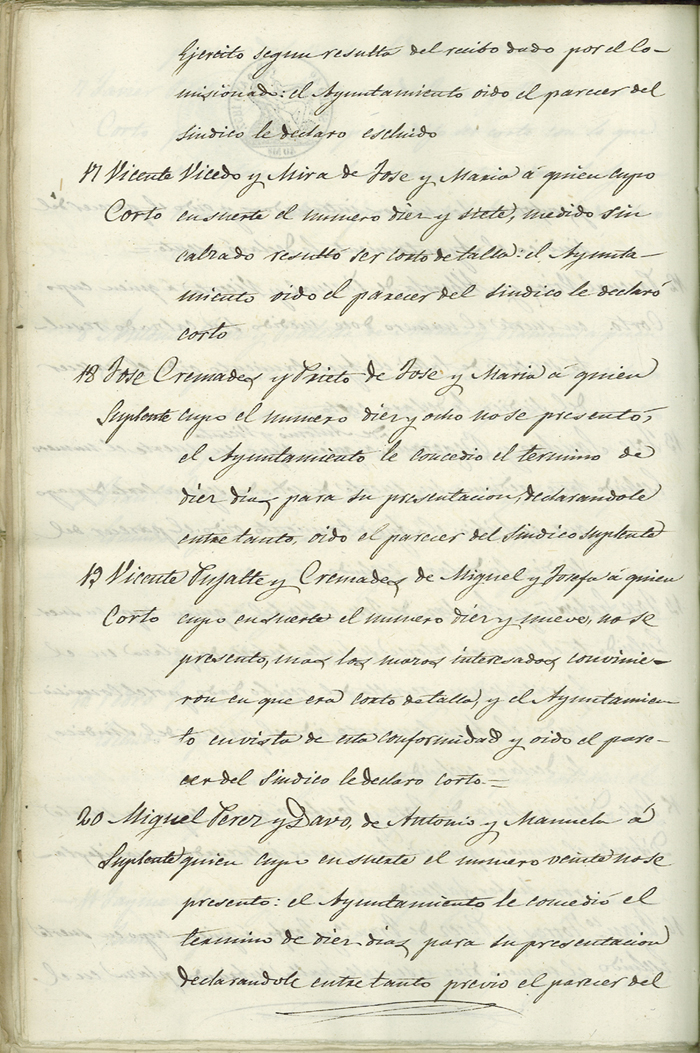 Ejercito segun resulta del recibo dado por el Co-
misionado: el Ayuntamiento oido el parecer del
sindico le declaro escluido
17 Vicente Vicedo y Mira de Jose y Maria á quien cupo
Corto en suerte el numero diez y siete, medido sin
calzado resultó ser corto de talla: el Ayunta-
miento oido el parecer del sindico le declaró
corto
18 Jose Cremades y Prieto de Jose y Maria á quien
Suplente cupo el numero diez y ocho no se presentó,
el Ayuntamiento le concedio el termino de
diez dias para su presentacion, declarandole
entre tanto, oido el parecer del Sindico suplente
19 Vicente Pujalte y Cremades de Miguel y Josefa á quien
Corto cupo en suerte el numero diez y nueve, no se
presento, mas los mozos interesados convinie-
ron en que era corto de talla, y el Ayuntamien
to en vista de esta conformidad y oido el pare-
cer del Sindico le declaro corto=
20 Miguel Perez y Davo, de Antonio y Manuela á
Suplente quien cupo en suerte el numero veinte no se
presento: el Ayuntamiento le concedió el
termino de diez dias para su presentacion
declarandole entre tanto previo el parecer del